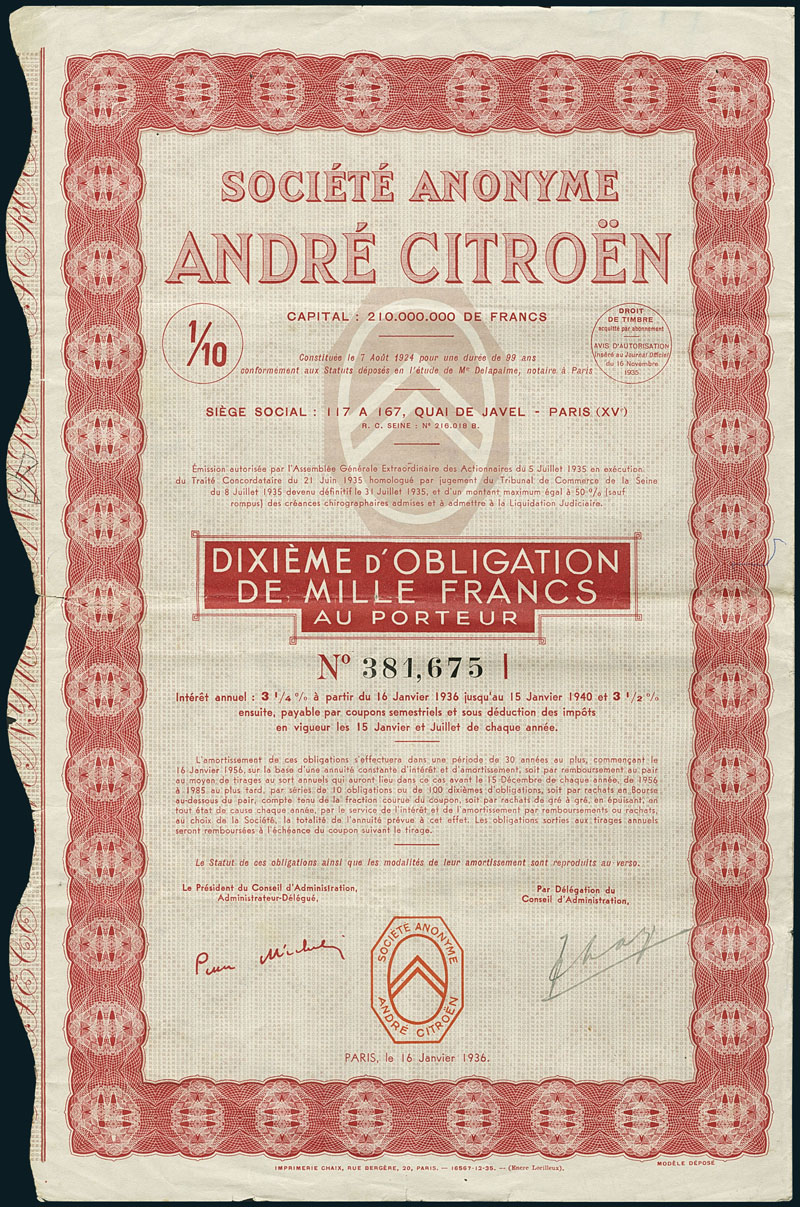 SOCIÉTÉ ANONYME
ANDRÉ CITROËN
1/10
CAPITAL : 210.000.000 DE FRANCS
Constituée le 7 Août 1924 pour une durée de 99 ans
conformement aux Statuts déposés en l'étude de Me Delapalme, notaire à Paris
DROIT
DE TIMBRE
acquitté par abonnement
AVIS D'AUTORISATION
inséré au Journal Officiel
du 16 Novembre
1935.
SIÈGE SOCIAL : 117 A 167, QUAI DE JAVEL - PARIS (XVe)
R. C. SEINE : No 216.018 B.
Émission autorisée par l'Assemblée Générale Extraordinaire des Actionnaires du 5 Juillet 1935 en exécution
du Traité Concordataire du 21 Juin 1935 homologué par jugement du Tribunal de Commerce de la Seine
du 8 Juillet 1935 devenu définitif le 31 Juillet 1935, et d'un montant maximum égal à 50 % (sauf
rompus) des créances chirographaires admises et à admettre à la Liquidation Judiciaire.
DIXIÈME D'OBLIGATION
DE MILLE FRANCS
AU PORTEUR
No 381,675
Intérêt annuel : 3 1/4 % à partir du 16 Janvier 1936 jusqu'au 15 Janvier 1940 et 3 1/2 %
ensuite, payable par coupons semestriels et sous déduction des impôts
en vigueur les 15 Janvier et Juillet de chaque année.
L'amortissement de ces obligations s'effectuera dans une période de 30 années au plus, commençant le
16 Janvier 1956, sur la base d'une annuité constante d'intérêt et d'amortissement, soit par remboursement au pair
au moyen de tirages au sort annuels qui auront lieu dans ce cas avant le 15 Décembre de chaque année, de 1956
à 1985 au plus tard, par séries de 10 obligations ou de 100 dixièmes d'obligations, soit par rachats en Bourse
au-dessous du pair, compte tenu de la fraction courue du coupon, soit par rachats de gré à gré, en épuisant, en
tout état de cause chaque année, par le service de l'intérêt et de l'amortissement par remboursements ou rachats,
au choix de la Société, la totalité de l'annuité prévue à cet effet. Les obligations sorties aux tirages annuels
seront remboursées à l'échéance du coupon suivant le tirage.
Le Statut de ces obligations ainsi que les modalités de leur amortissement sont reproduits au verso.
Le Président du Conseil d'Administration,
Administrateur-Délégué,
Par Délégation du
Conseil d'Administration,
Pierre Michelin
SOCIÉTÉ ANONYME
ANDRÉ CITROËN
PARIS, le 16 Janvier 1936.
IMPRIMERIE CHAIX, RUE BERGÈRE, 20, PARIS. — 16567-12-35. — (Encre Lorilleux).
MODÈLE DÉPOSÉ